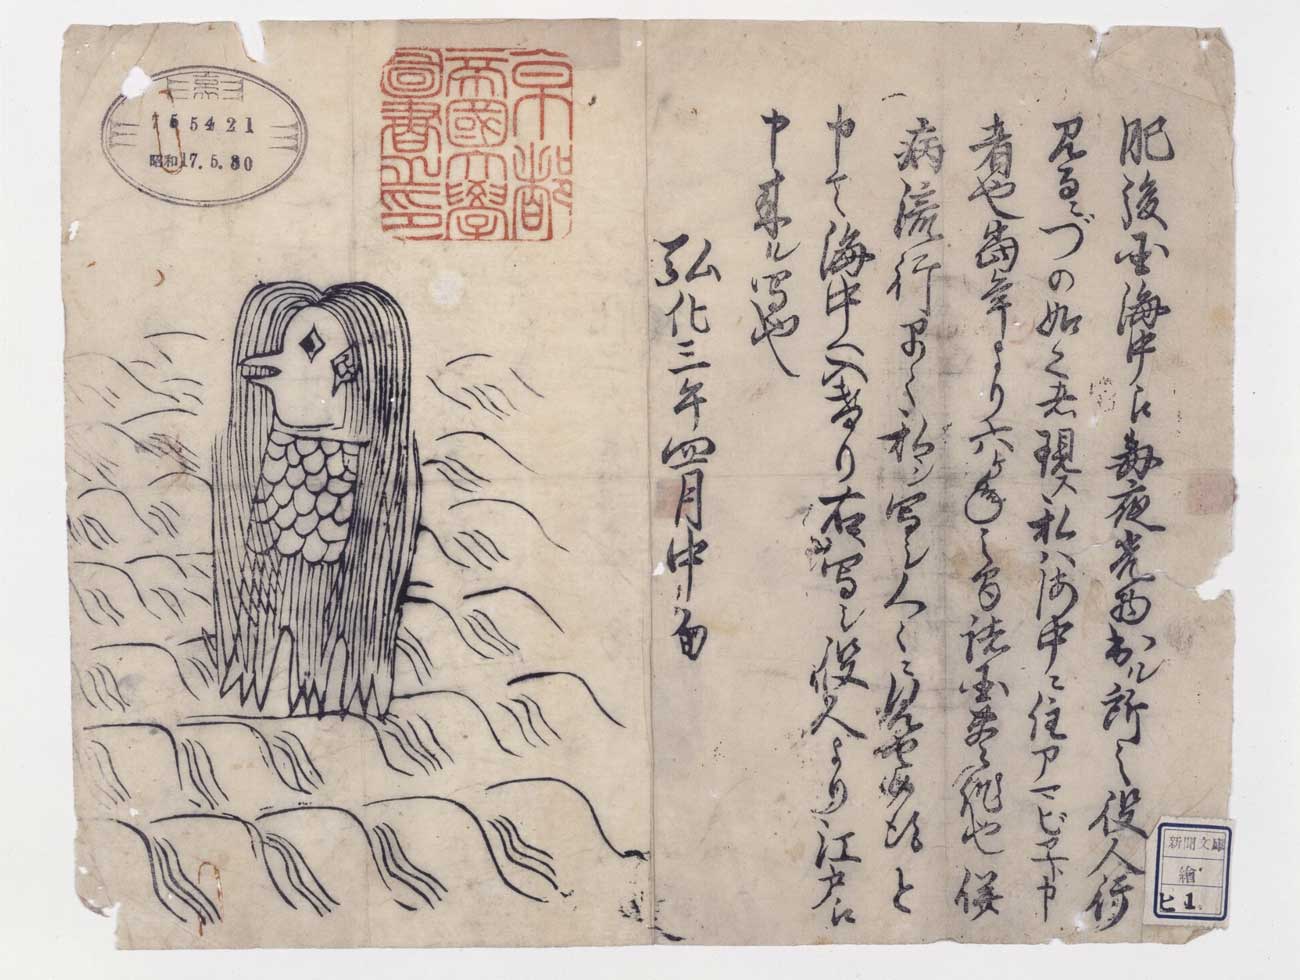 肥後国海中江毎夜光物出ル所之役人行
見るニづの如く者現ス私ハ海中ニ住アマビヱト申
者也當年より六ヶ年之間諸国豊作也併
病流行早々私シ写シ人々ニ見せ候得と
申て海中へ入けり右写シ役人より江戸江
申来ル写也
弘化三年四月中旬
京都
帝國大學
圖書之印
155421
昭和17.5.30
新聞文庫
繪
ヒ1.